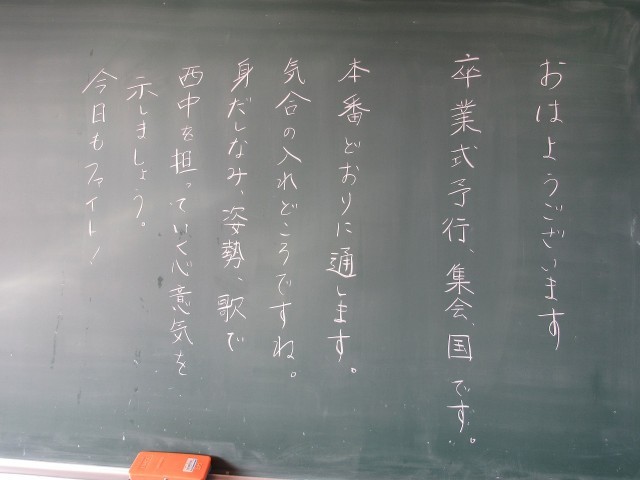 おはようございます
卒業式予行、集会、国です。
本番どおりに通します。
気合の入れどころですね。
身だしなみ、姿勢、歌で
西中を担っていく心意気を
示しましょう。
今日もファイト!